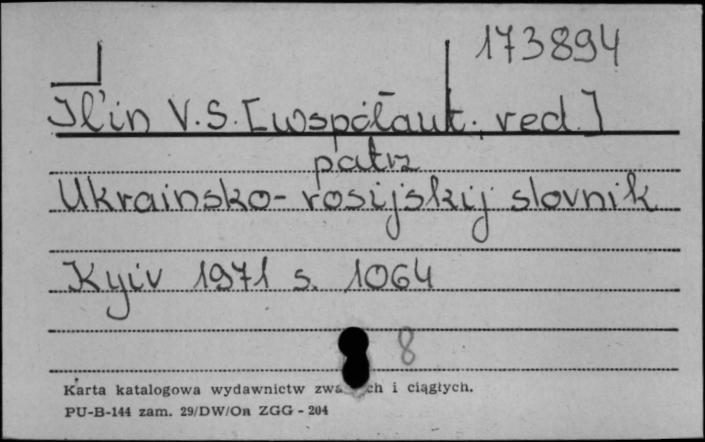 173894
Il'in V.S. [współaut., red.]
patrz
Ukrainsko-rosijskij slovnik
Kyiv 1971 s. 1064
8
Karta katalogowa wydawnictw i ciągłych.
PU-B-144 zam. 29/DW/On ZGG - 204